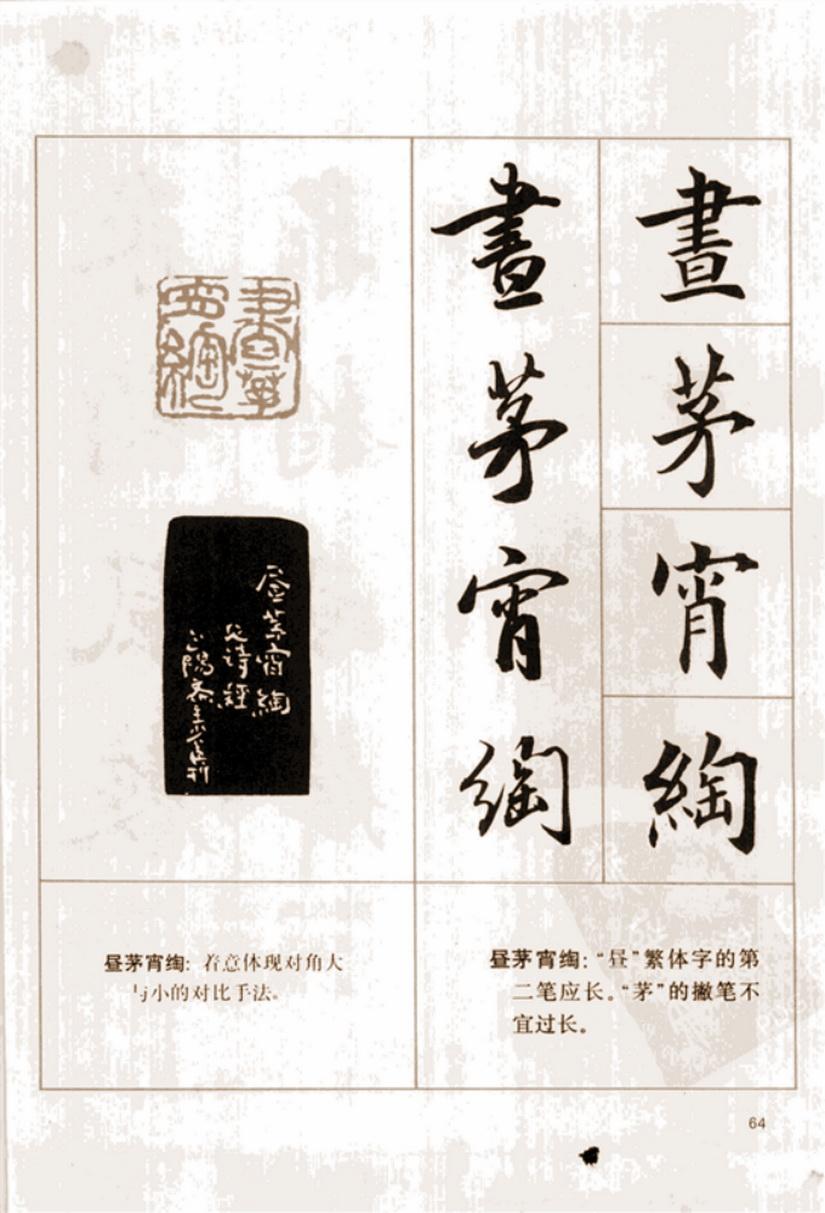 晝
茅
宵
綯
晝
茅
宵
綯
晝茅
宵綯
昼茅宵綯
见诗经
昼茅宵绹：着意体现对角大
与小的对比手法。
昼茅宵绹：“昼”繁体字的第
二笔应长。“茅”的撇笔不
宜过长。
64